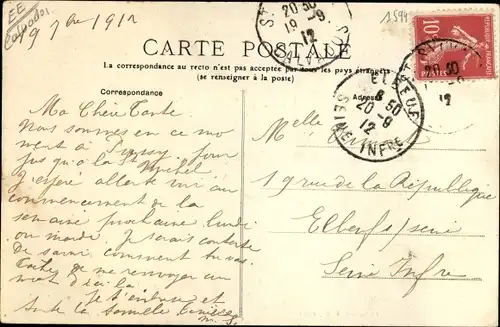 EE
Calvados
19 7bre 1912
1594
20 50
19 - 9
12
CALVADOS
10
POSTES
20 50
12
CARTE POSTALE
La correspondance au recto n'est pas acceptée par tous les pays étrangers
(se renseigner à la poste)
Correspondance
Adresse
ELBEUF
8 50
20 - 9
12
SEINE INFRE
Ma Chère Tante
Nous sommes en ce mo
ment à pour
jusqu'à la St Michel
J'espère aller te voir au
commencement de la
semaine prochaine lundi
ou mardi. Je serais contente
De savoir comment tu vas.
Tâche de me renvoyer un
mot d'ici là
Je t'embrasse et
toute la famille
Melle
19 rue de la République
Elbeuf s/seine
Seine Infre